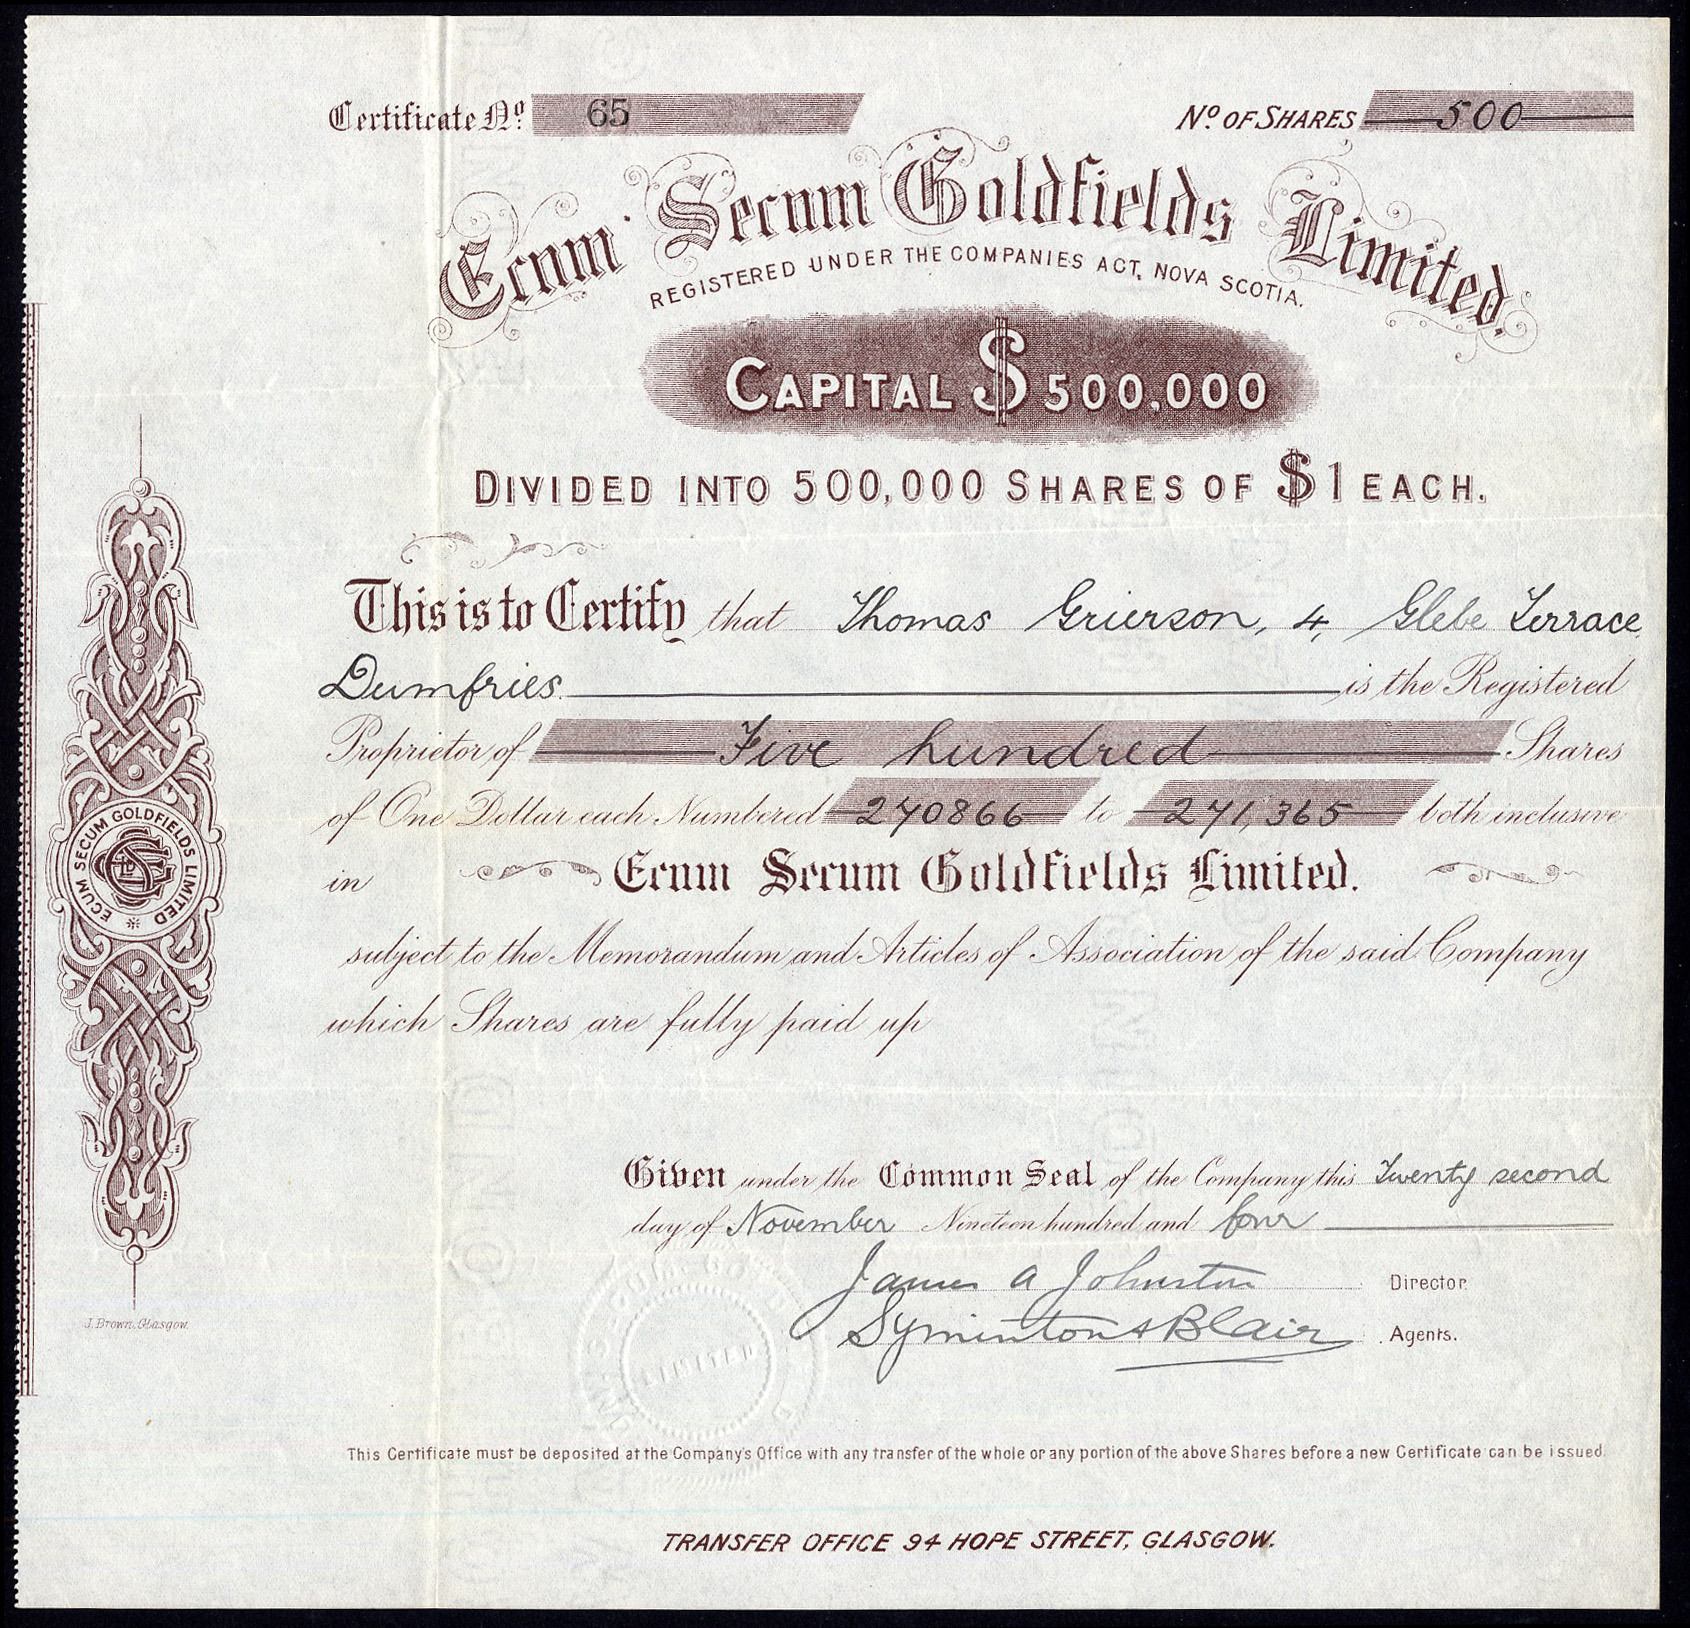 Certificate No. 65
No. OF SHARES 500
Ecum Secum Goldfields Limited.
REGISTERED UNDER THE COMPANIES ACT, NOVA SCOTIA.
CAPITAL $500,000
DIVIDED INTO 500,000 SHARES OF $1 EACH.
This is to Certify that Thomas Grierson, 4, Glebe Terrace,
Dumfries is the Registered
Proprietor of Five hundred Shares
of One Dollar each Numbered 240866 to 241,365 both inclusive
in Ecum Secum Goldfields Limited.
subject to the Memorandum and Articles of Association of the said Company
which Shares are fully paid up
ECUM SECUM GOLDFIELDS LIMITED
Given under the Common Seal of the Company this Twenty second
day of November Nineteen hundred and four
James A Johnston Director.
Symington & Blair Agents.
LIMITED
J. Brown, Glasgow.
This Certificate must be deposited at the Company's Office with any transfer of the whole or any portion of the above Shares before a new Certificate can be issued.
TRANSFER OFFICE 94 HOPE STREET, GLASGOW.